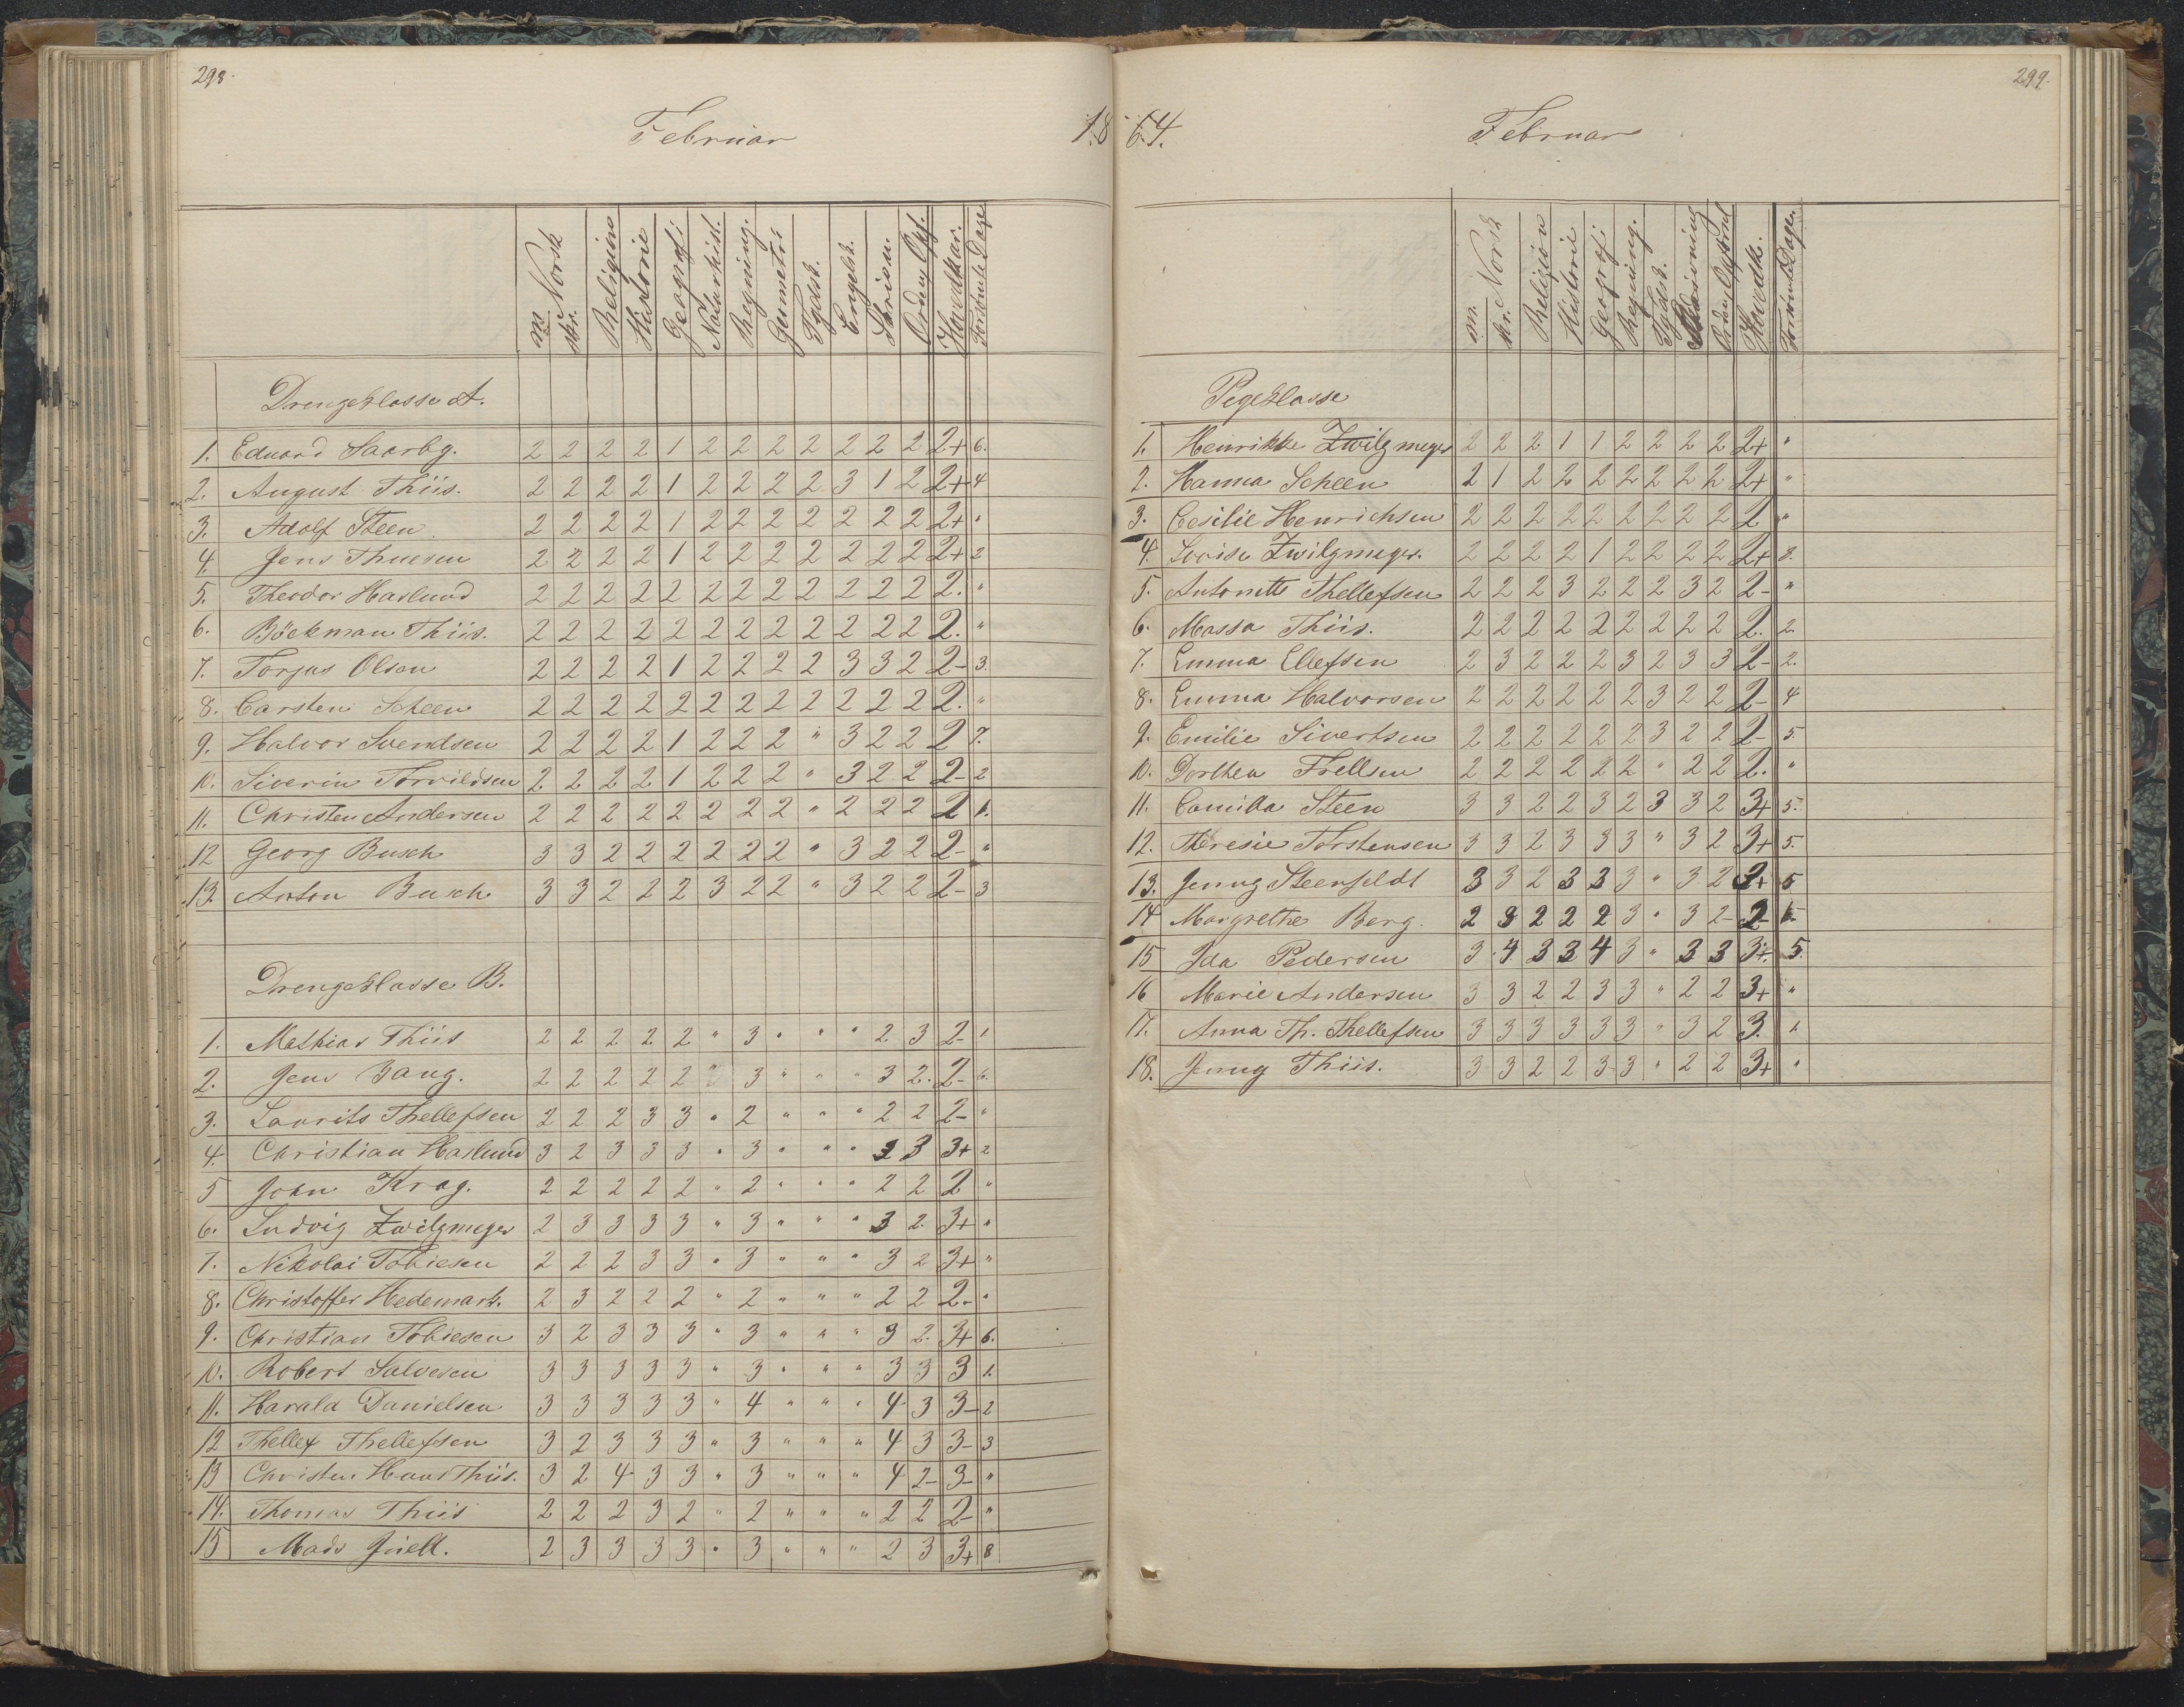 298.
Februar 18
m. Norsk skr. Religion Historie Geografi: Naturhist. Regning. Geometri Tydsk. Engelsk. Skrivn. Orden Opf. Hovedkar. Forsømte Dage
Drengeklasse A.
1. Eduard Saarbg. 2 2 2 2 1 2 2 2 2 2 2 2 2+ 6.
2. August Thiis. 2 2 2 2 1 2 2 2 2 3 1 2 2+ 4
3. Adolf Steen 2 2 2 2 1 2 2 2 2 2 2 2 2+ "
4. Jens Thuesen 2 2 2 2 1 2 2 2 2 2 2 2 2+ 2
5. Theodor Haslund 2 2 2 2 2 2 2 2 2 2 2 2 2. "
6. Böckman Thiis. 2 2 2 2 2 2 2 2 2 2 2 2 2. "
7. Torjus Olsen 2 2 2 2 1 2 2 2 2 3 3 2 2- 3.
8. Carsten Scheen 2 2 2 2 2 2 2 2 2 2 2 2 2. "
9. Halvor Svendsen 2 2 2 2 1 2 2 2 " 3 2 2 2 7.
10. Siverin Torvildsen 2 2 2 2 1 2 2 2 " 3 2 2 2- 2
11. Christen Andersen 2 2 2 2 2 2 2 2 " 2 2 2 2 1.
12 Georg Busch 3 3 2 2 2 2 2 2 " 3 2 2 2- "
13. Anton Busch. 3 3 2 2 2 3 2 2 " 3 2 2 2- 3
Drengeklasse B.
1. Mathias Thiis 2 2 2 2 2 " 3 " " " 2 3 2- 1
2. Jens Bang. 2 2 2 2 2 " 3 " " " 3 2. 2- 6.
3. Laurits Thellefsen 2 2 2 3 3 " 2 " " " 2 2 2- "
4. Christian Haslund 3 2 3 3 3 " 3 " " " 2 3 3+ 2
5 John Krag. 2 2 2 2 2 " 2 " " " 2 2 2 "
6. Ludvig Zwilgmeyer 2 3 3 3 3 " 3 " " " 3 2. 3+ "
7. Nikolai Tobiesen 2 2 2 3 3 " 3 " " " 3 2 3+ "
8. Christoffer Hedemark. 2 3 2 2 2 " 2 " " " 2 2 2- "
9. Christian Tobiesen 3 2 3 3 3 " 3 " " " 3 2. 3+ 6.
10. Robert Salvesen 3 3 3 3 3 " 3 " " " 3 3 3 1.
11. Harald Danielsen 3 3 3 3 3 " 4 " " " 4 3 3- 2
12 Thellef Thellefsen 3 2 3 3 3 " 3 " " " 4 3 3- 3
13 Christen Haus Thiis. 3 2 4 3 3 " 3 " " " 4 2- 3- "
14. Thomas Thiis 2 2 2 3 2 " 2 " " " 2 2 2- "
15 Mads Juell. 2 3 3 3 3 " 3 " " " 2 3 3+ 8
299.
64. Februar
m. Norsk skr. Religion Historie Geografi: Regning. Tydsk. Skrivning Orden Opførsel Hovedk. Forsømte Dage.
Pigeklasse
1. Henrikke Zwilgmeyer 2 2 2 1 1 2 2 2 2 2+ "
2. Hanna Scheen 2 1 2 2 2 2 2 2 2 2+ "
3. Cesilie Henrichsen 2 2 2 2 2 2 2 2 2 2 "
4. Lovise Zwilgmeyer. 2 2 2 2 1 2 2 2 2 2+ 2.
5. Antonette Thellefsen 2 2 2 3 2 2 2 3 2 2- "
6. Massa Thiis. 2 2 2 2 2 2 2 2 2 2. 2
7. Emma Ellefsen 2 3 2 2 2 3 2 3 3 2- 2.
8. Emma Halvorsen 2 2 2 2 2 2 3 2 2 2- 4
9. Emilie Sivertsen 2 2 2 2 2 2 3 2 2 2- 5.
10. Dorthea Frellsen 2 2 2 2 2 2 " 2 2 2. "
11. Camilla Steen 3 3 2 2 3 2 3 3 2 3+ 5.
12. Theresie Torstensen 3 3 2 3 3 3 " 3 2 3+ 5.
13. Jenny Steenfeldt 3 3 2 3 3 3 " 3 2 3+ 5
14 Margrethe Berg. 2 3 2 2 2 3 " 3 2- 2-
15 Ida Pedersen 3 4 3 3 4 3 " 3 3 3+. 5.
16 Marie Andersen 3 3 2 2 3 3 " 2 2 3+ "
17. Anna Th. Thellefsen 3 3 3 3 3 3 " 3 2 3. 1.
18. Jenny Thiis. 3 3 2 2 3 3 " 2 2 3+ "